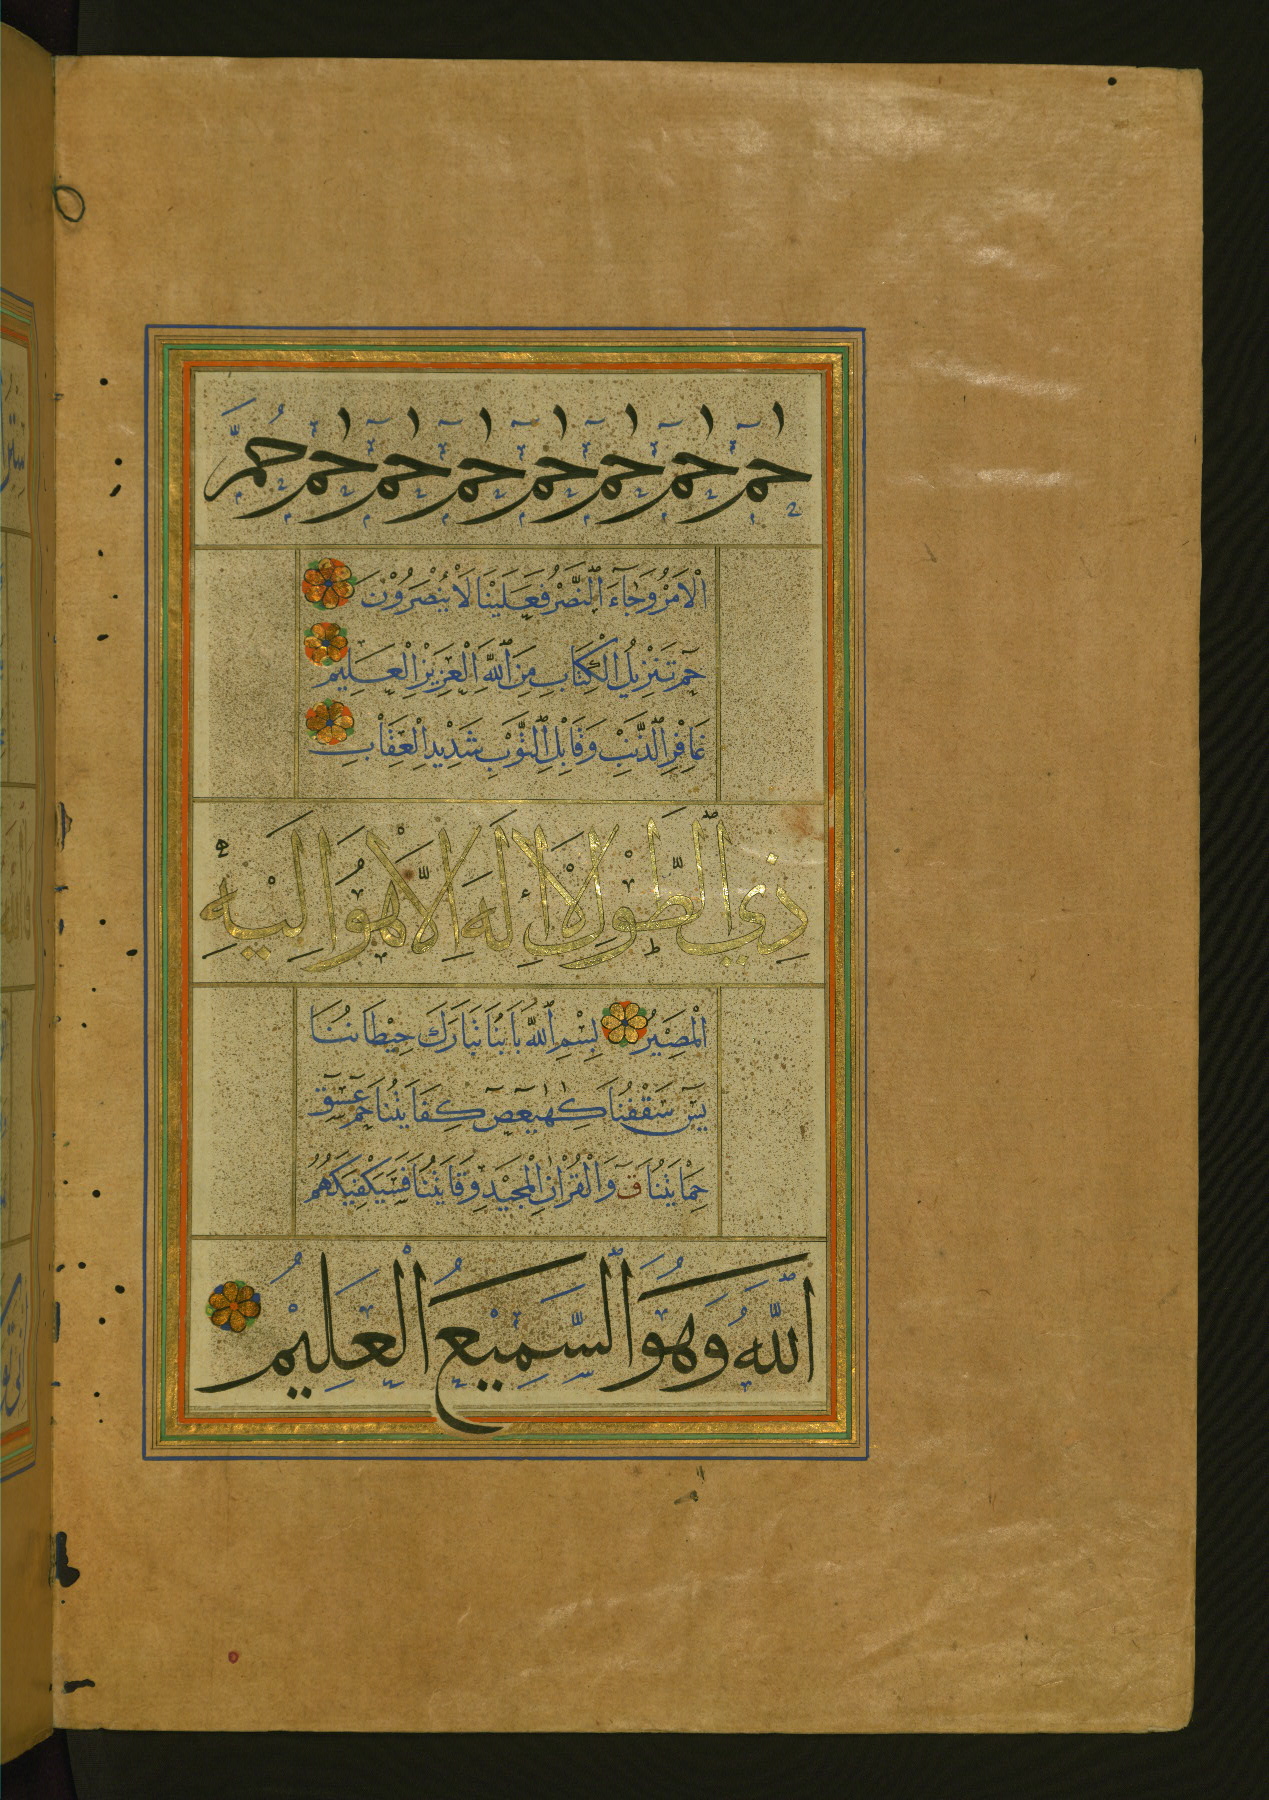 حٰمٓ حٰمٓ حٰمٓ حٰمٓ حٰمٓ حٰمٓ حٰمٓ حُمَّ
الْاَمْرُ وَجَآءَ النَّصْرُ فَعَلَيْنَا لَا يُنْصَرُوْنَ
حٰمٓ تَنْزِيلُ الْكِتَابِ مِنَ اللّٰهِ الْعَزِيْزِ الْعَلِيْمِ
غَافِرِ الذَّنْبِ وَقَابِلِ التَّوْبِ شَدِيْدِ الْعِقَابِ
ذِي الطَّوْلِ لَا اِلٰهَ اِلَّا هُوَ اِلَيْهِ
الْمَصِيْرُ بِسْمِ اللّٰهِ بَابُنَا تَبَارَكَ حِيْطَانُنَا
يٰسٓ سَقْفُنَا كٓهٰيٰعٓصٓ كِفَايَتُنَا حٰمٓ عٓسٓقٓ
حِمَايَتُنَا قٓ وَالْقُرْاٰنِ الْمَجِيْدِ وِقَايَتُنَا فَسَيَكْفِيْكَهُمُ
اللّٰهُ وَهُوَ السَّمِيْعُ الْعَلِيْمُ